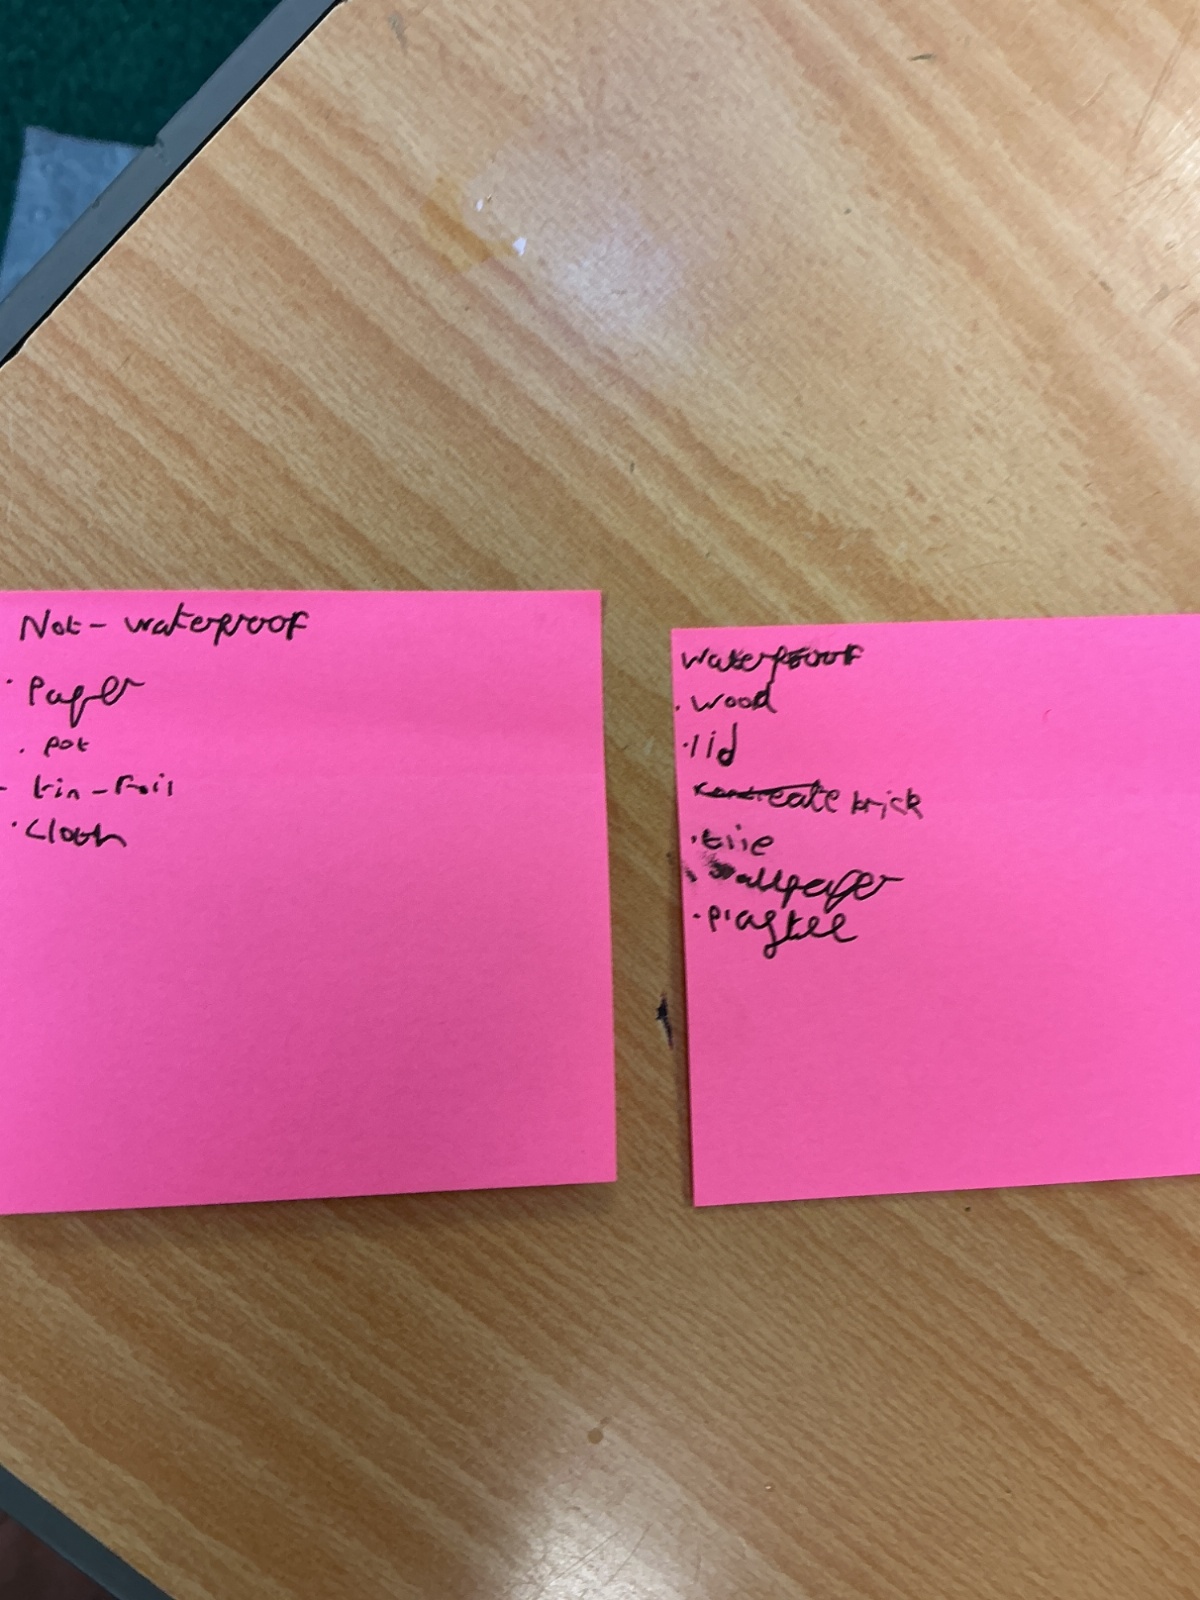 Not - waterproof
· Paper
· pot
- tin - foil
· cloth
waterproof
· wood
· lid
brick
· tile
· wallpaper